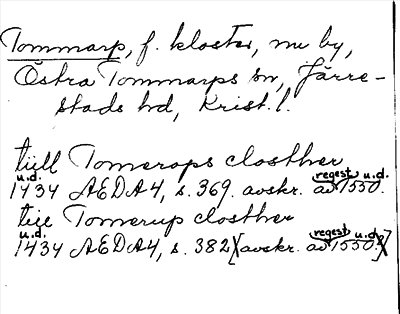 Tommarp, f. kloster, nu by,
Östra Tommarps sn, Järre-
stads hd, Krist. l.
tiill Tomerops closther
u.d. regest u.d.
1434 AEDA4, s. 369. avskr. av 1550.
tiie Tomerup closther
u.d. regest u.d.
1434 AEDA4, s. 382 [avskr. av 1550.]